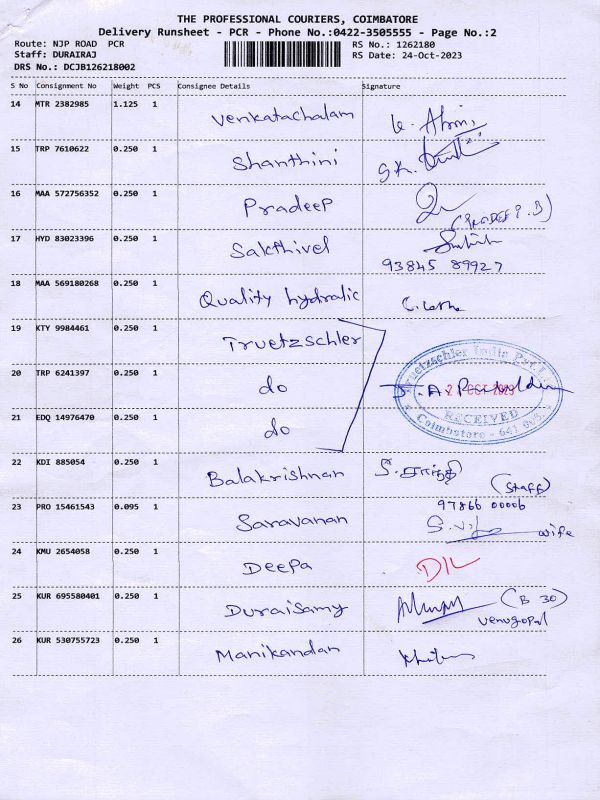 THE PROFESSIONAL COURIERS, COIMBATORE
Delivery Runsheet - PCR - Phone No.:0422-3505555 - Page No.:2
Route: NJP ROAD PCR
RS No.: 1262180
Staff: DURAIRAJ
RS Date: 24-Oct-2023
DRS No.: DCJB126218002
S No Consignment No Weight PCS Consignee Details Signature
14 MTR 2382985 1.125 1 Venkatachalam
15 TRP 7610622 0.250 1 Shanthini
16 MAA 572756352 0.250 1 Pradeep
17 HYD 83023396 0.250 1 Sakthivel
93845 89927
18 MAA 569180268 0.250 1 Quality hydralic
19 KTY 9984461 0.250 1 Truetzschler
Truetzschler India Pvt L
20 TRP 6241397 0.250 1 do
RECEIVED
21 EDQ 14976470 0.250 1 do
Coimbatore - 641 005
22 KDI 885054 0.250 1 Balakrishnan S. சாந்தி
(Staff)
23 PRO 15461543 0.095 1 Saravanan 97866 00006
wife
24 KMU 2654058 0.250 1 Deepa D/L
25 KUR 695580401 0.250 1 Duraisamy (B 30)
Venugopal
26 KUR 530755723 0.250 1 Manikandan